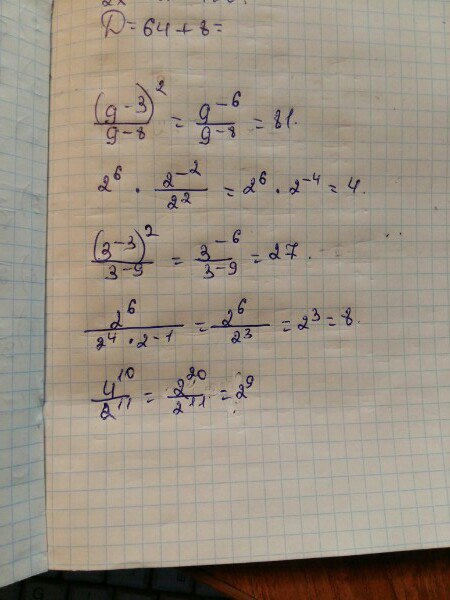 D = 64 + 8 =
(9^-3)^2 / 9^-8 = 9^-6 / 9^-8 = 81.
2^6 · 2^-2 / 2^2 = 2^6 · 2^-4 = 4.
(3^-3)^2 / 3^-9 = 3^-6 / 3^-9 = 27.
2^6 / 2^4 · 2^-1 = 2^6 / 2^3 = 2^3 = 8.
4^10 / 2^11 = 2^20 / 2^11 = 2^9